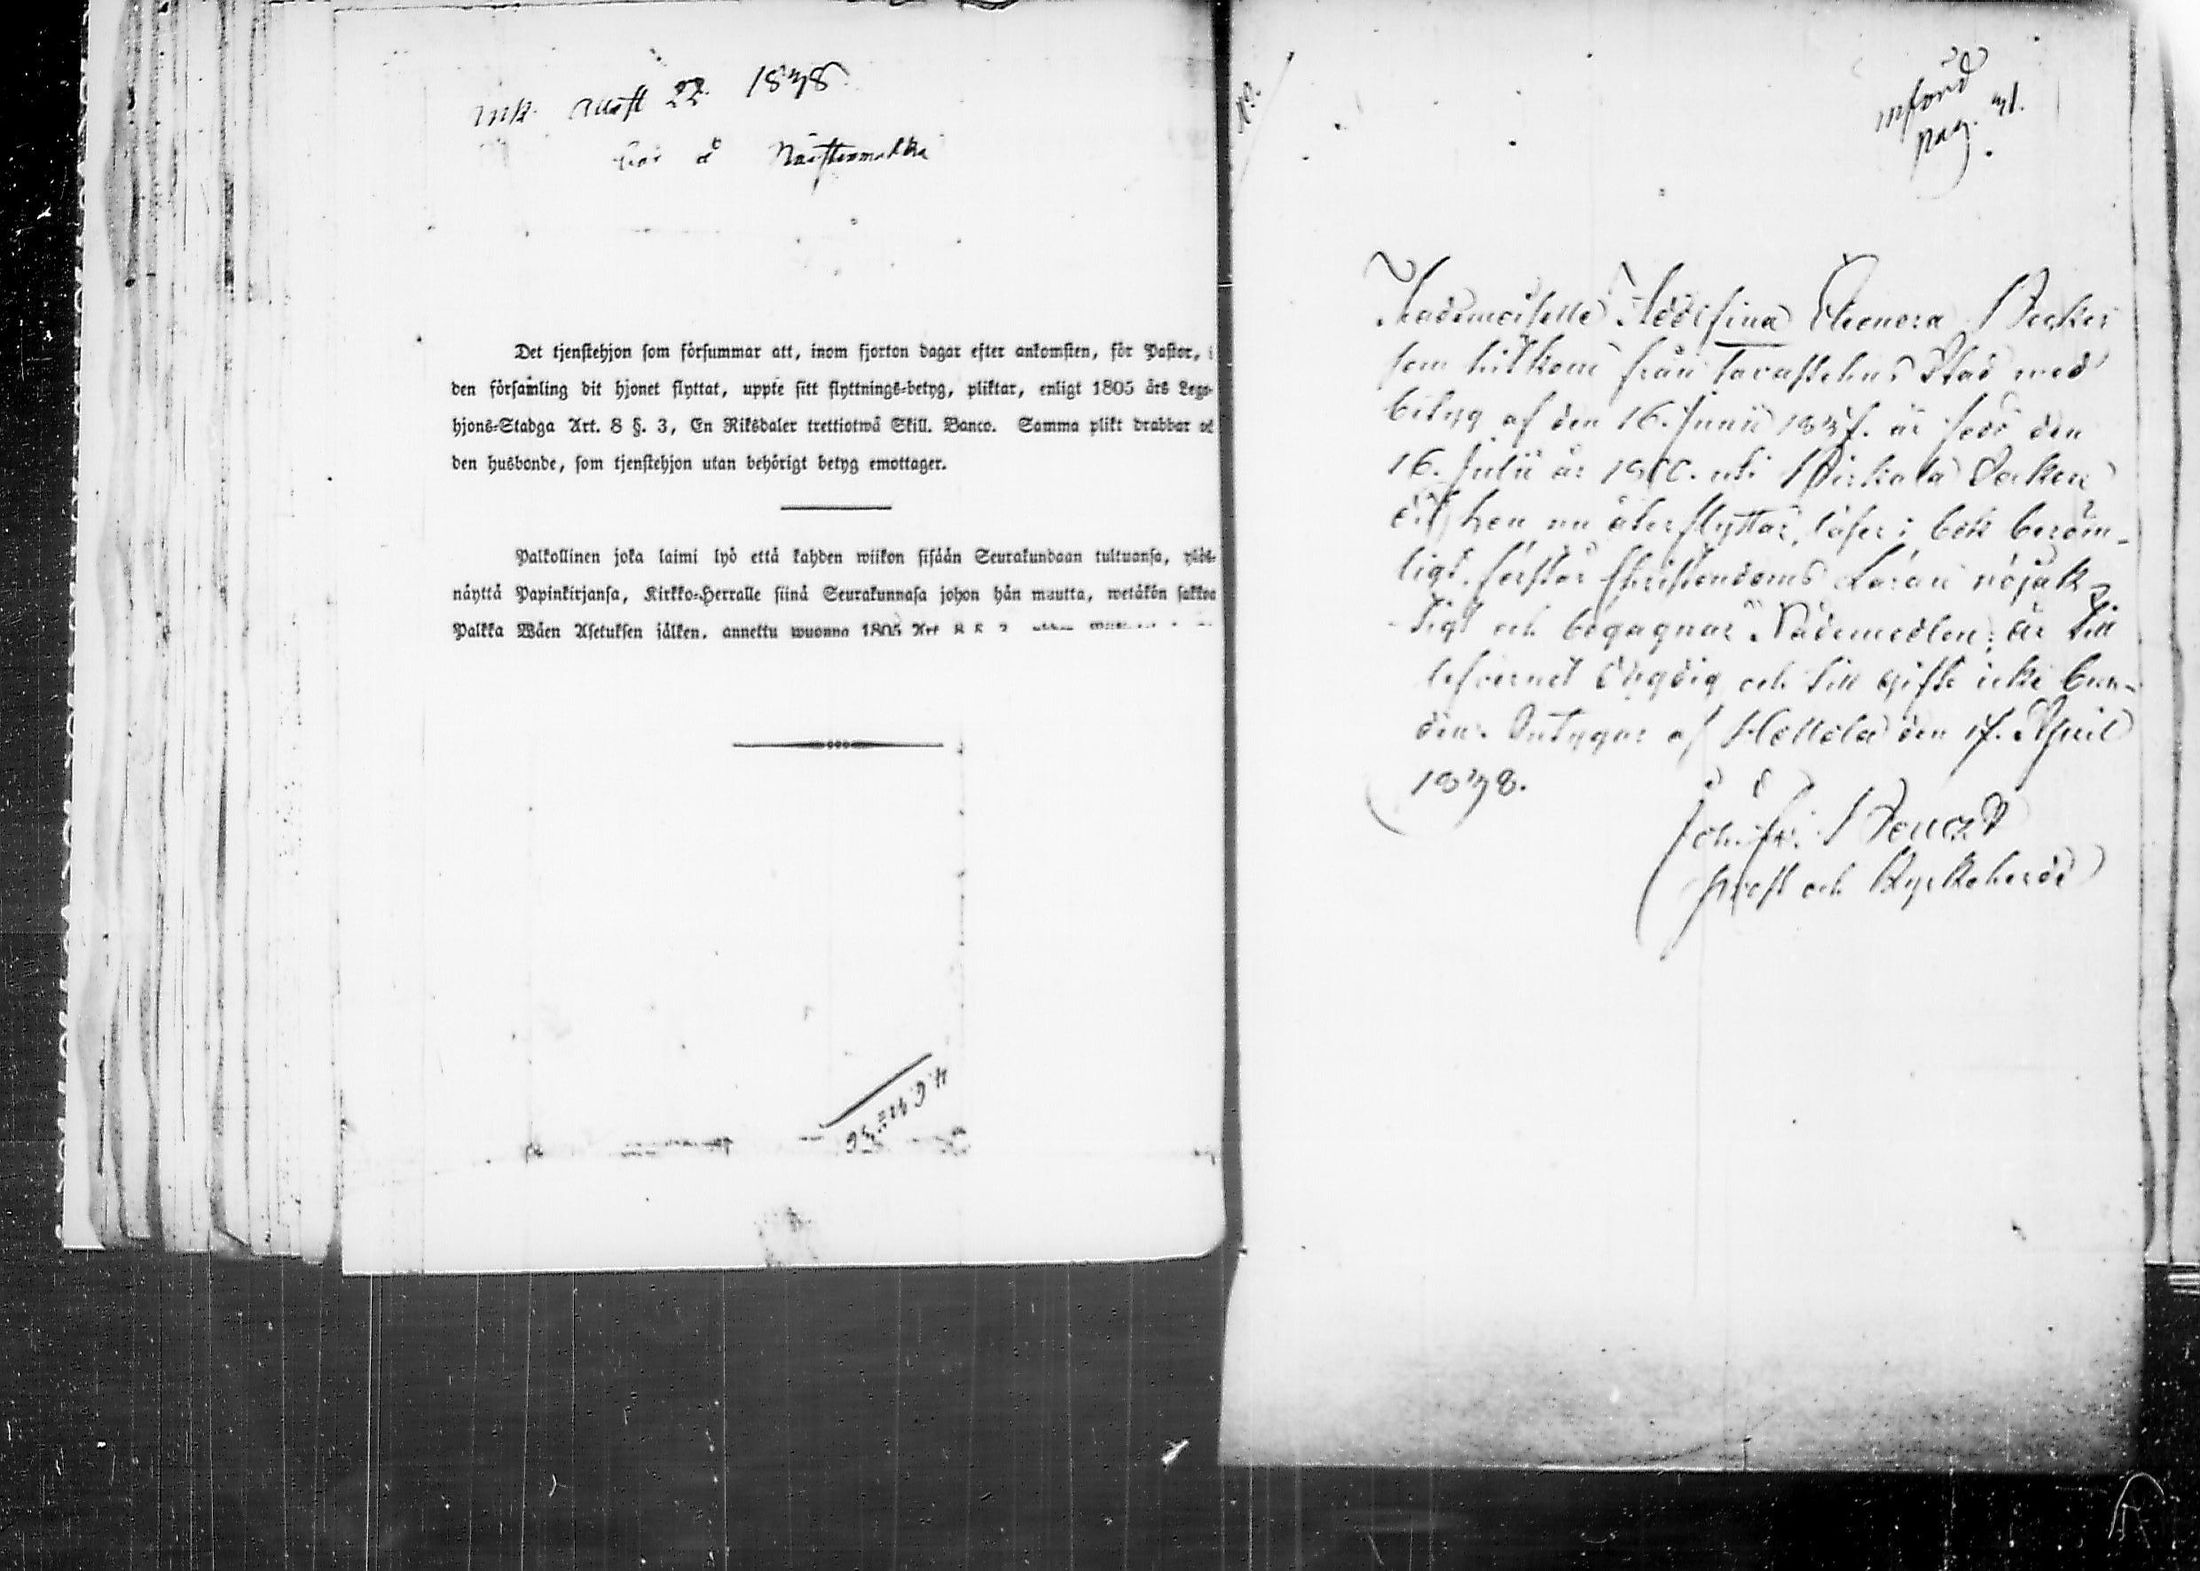 ink. 22. 1838.
å
Det tjenstehjon som försummar att, inom fjorton dagar efter ankomsten, för Pastor, i
den församling dit hjonet flyttat, uppte sitt flyttnings-betyg, pliktar, enligt 1805 års Lego-
hjons-Stadga Art. 8 §. 3, En Riksdaler trettiotwå Skill. Banco. Samma plikt drabbar
den husbonde, som tjenstehjon utan behörigt betyg emottager.
Palkollinen joka laimi lyö että kahden wiikon sisään Seurakundaan tultuansa,
näyttä Papinkirjansa, Kirkko-Herralle siinä Seurakunnasa johon hän muutta, wetäkön sakkoa
Palkka Wäen Asetuksen jälken, annettu wuonna 1805 Art. 8 §. 3
No.
införd
pag. 31.
Mademoiselle Adolfina Eleonora Becker
som hitkom från Tavastehus Stad med
betyg af den 16. Junii 1837. är född den
16. Julii år uti Birkala Socken
dit hon nu återflyttar, läser i bok beröm-
ligt, förstår Christendoms Läran nöjak-
tigt och begagnar Nådemedlen; är till
lefvernet dygdig och till gifte icke bun-
den. Intygar af Hollola den 17. April
1838.
Joh. Fr.
Prost och Kyrkoherde